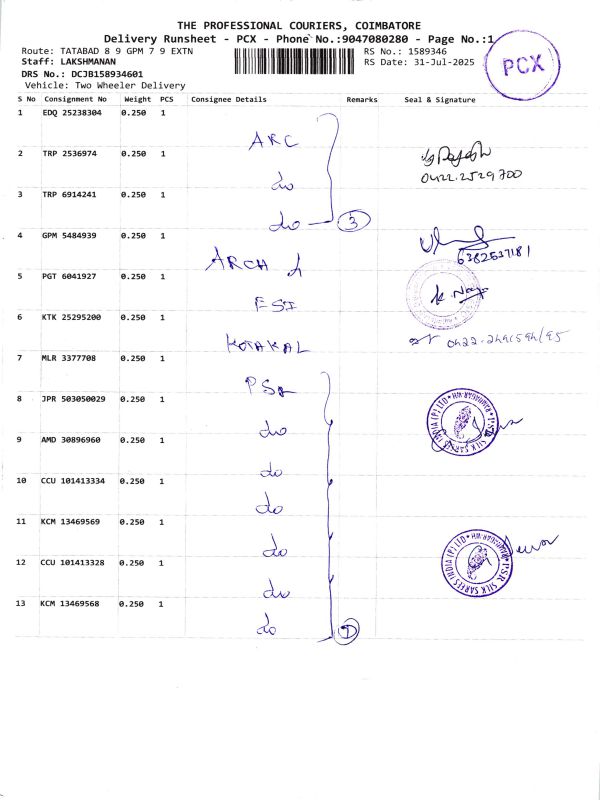 THE PROFESSIONAL COURIERS, COIMBATORE
Delivery Runsheet - PCX - Phone No.:9047080280 - Page No.:1
Route: TATABAD 8 9 GPM 7 9 EXTN
RS No.: 1589346
Staff: LAKSHMANAN
RS Date: 31-Jul-2025
DRS No.: DCJB158934601
Vehicle: Two Wheeler Delivery
PCX
S No Consignment No Weight PCS Consignee Details Remarks Seal & Signature
1 EDQ 25238304 0.250 1 ARC
2 TRP 2536974 0.250 1 do
0422.2529700
3 TRP 6914241 0.250 1 do 3
4 GPM 5484939 0.250 1 ARCH
6382537181
5 PGT 6041927 0.250 1 ESI
6 KTK 25295200 0.250 1 KOTAKAL
7 MLR 3377708 0.250 1 PSR
8 JPR 503050029 0.250 1 do
PSR SILK SAREES INDIA (P) LTD
9 AMD 30896960 0.250 1 do
10 CCU 101413334 0.250 1 do
11 KCM 13469569 0.250 1 do
12 CCU 101413328 0.250 1 do
PSR SILK SAREES INDIA (P) LTD
13 KCM 13469568 0.250 1 do 7